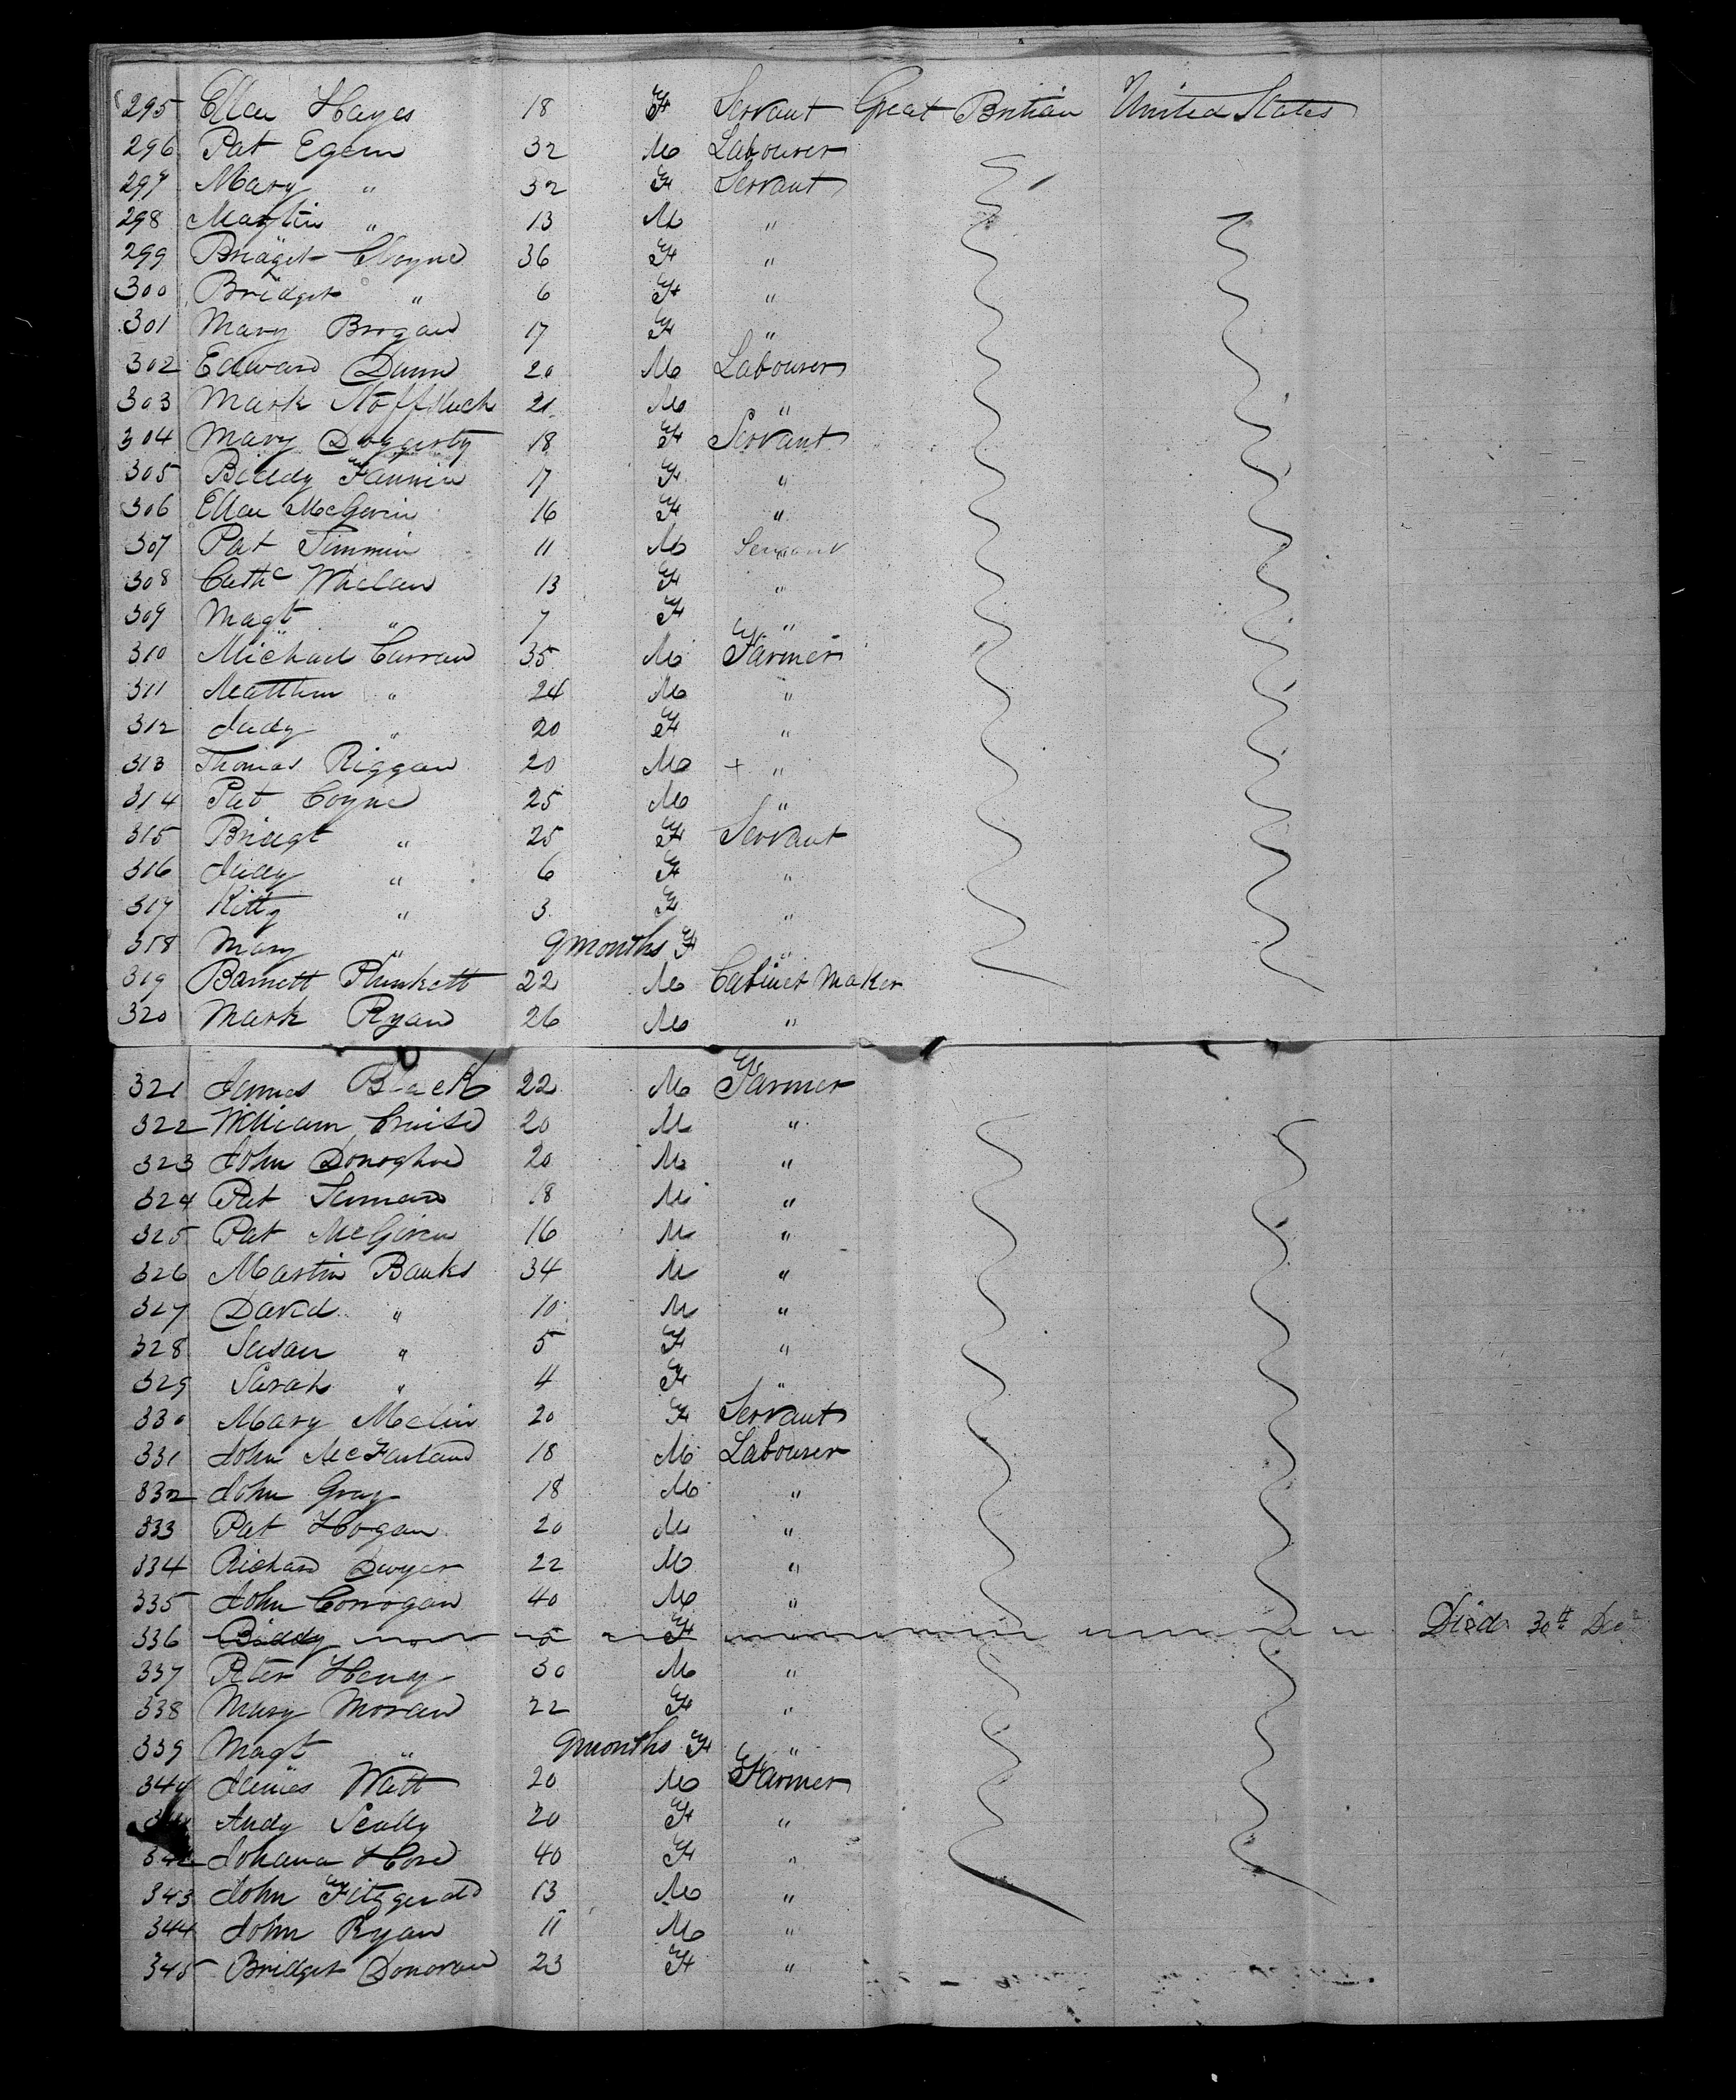 295 Ellen Hayes 18 F Servant Great Britian United States
296 Pat Egan 32 M Labourer
297 Mary " 32 F Servant
298 Martin " 13 M "
299 Bridget Coyne 36 F "
300 Bridget " 6 F "
301 Mary Brogan 17 F "
302 Edward Dunn 20 M Labourer
303 Mark 21 M "
304 Mary Doggerty 18 F Servant
305 Biddy Fannin 17 F "
306 Ellen McGovin 16 F "
307 Pat Timmin 11 M Servant
308 Cathe Whelan 13 F "
309 Magt " 7 F "
310 Michael Curran 35 M Farmer
311 Matthew " 24 M "
312 Judy " 20 F "
313 Thomas Riggan 20 M + "
314 Pat Coyne 25 M "
315 Bridgt " 25 F Servant
316 Judy " 6 F "
317 Kitty " 3 F "
318 Mary " 9 months F "
319 Barnett Plunkett 22 M Cabinet Maker
320 Mark Ryan 26 M "
321 James Black 22 M Farmer
322 William Cruise 20 M "
323 John Donoghoe 20 M "
324 Pat 18 M "
325 Pat McGiven 16 M "
326 Martin Banks 34 M "
327 David " 10 M "
328 Susan " 5 F "
329 Sarah " 4 F "
330 Mary Melin 20 F Servant
331 John McFarland 18 M Labourer
332 John Gray 18 M "
333 Pat Hogan 20 M "
334 Richard Dwyer 22 M "
335 John Corrogan 40 M "
336 Biddy F Died 30th Decr
337 Peter Heny 30 M "
338 Mary Moran 22 F "
339 Magt " 9 months F "
340 James Watt 20 M Farmer
341 Andy Scally 20 F "
342 Johana Hore 40 F "
343 John Fitzgerald 13 M "
344 John Ryan 11 M "
345 Bridget Donovan 23 F "